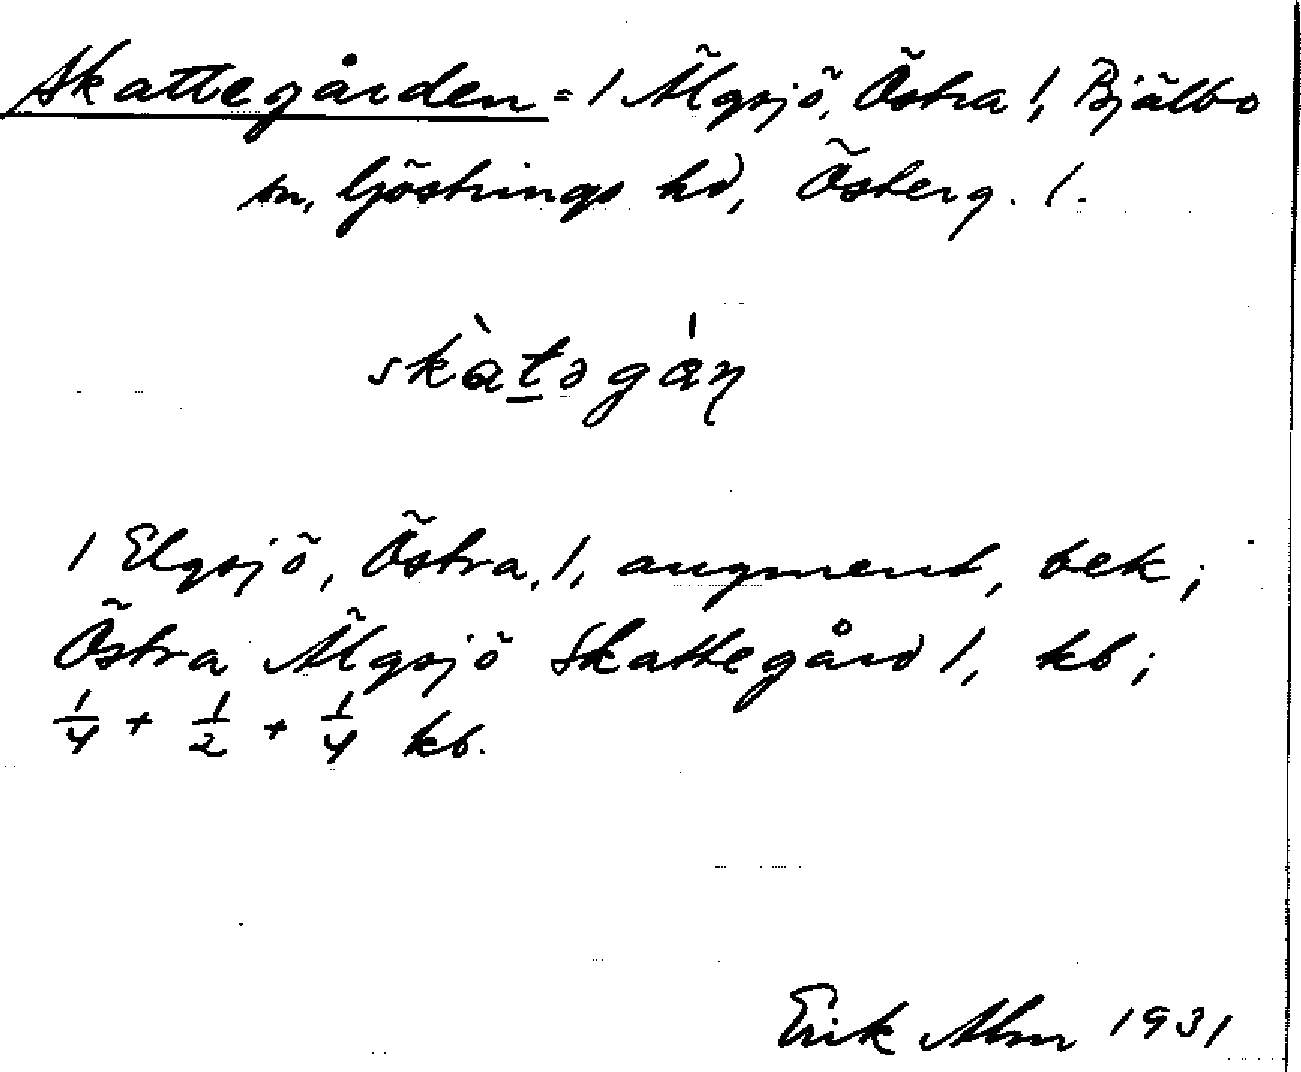 Skattegården = 1 Älgsjö, Östra 1, Bjälbo
sn, Göstrings hd, Österg. l.
skàtəgán
1 Elgsjö, Östra, 1, augment, bek;
Östra Älgsjö Skattegård 1, kb;
1/4 + 1/2 + 1/4 kb.
Erik Alm 1931